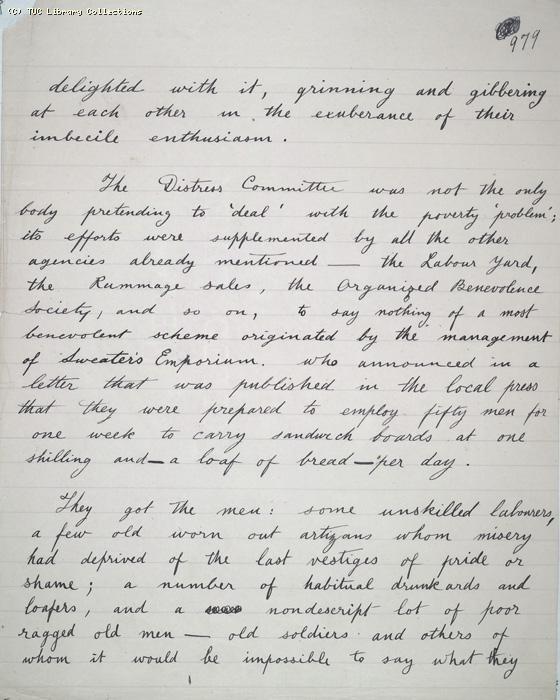 (C) TUC Library Collections
979
delighted with it, grinning and gibbering
at each other in the exuberance of their
imbecile enthusiasm.
The Distress Committee was not the only
body pretending to 'deal' with the poverty 'problem';
its efforts were supplemented by all the other
agencies already mentioned — the Labour Yard,
the Rummage Sales, the Organized Benevolence
Society, and so on, to say nothing of a most
benevolent scheme originated by the management
of Sweater's Emporium. who announced in a
letter that was published in the local press
that they were prepared to employ fifty men for
one week to carry sandwich boards at one
shilling and — a loaf of bread — per day.
They got the men: some unskilled labourers,
a few old worn out artizans whom misery
had deprived of the last vestiges of pride or
shame; a number of habitual drunkards and
loafers, and a nondescript lot of poor
ragged old men — old soldiers and others of
whom it would be impossible to say what they